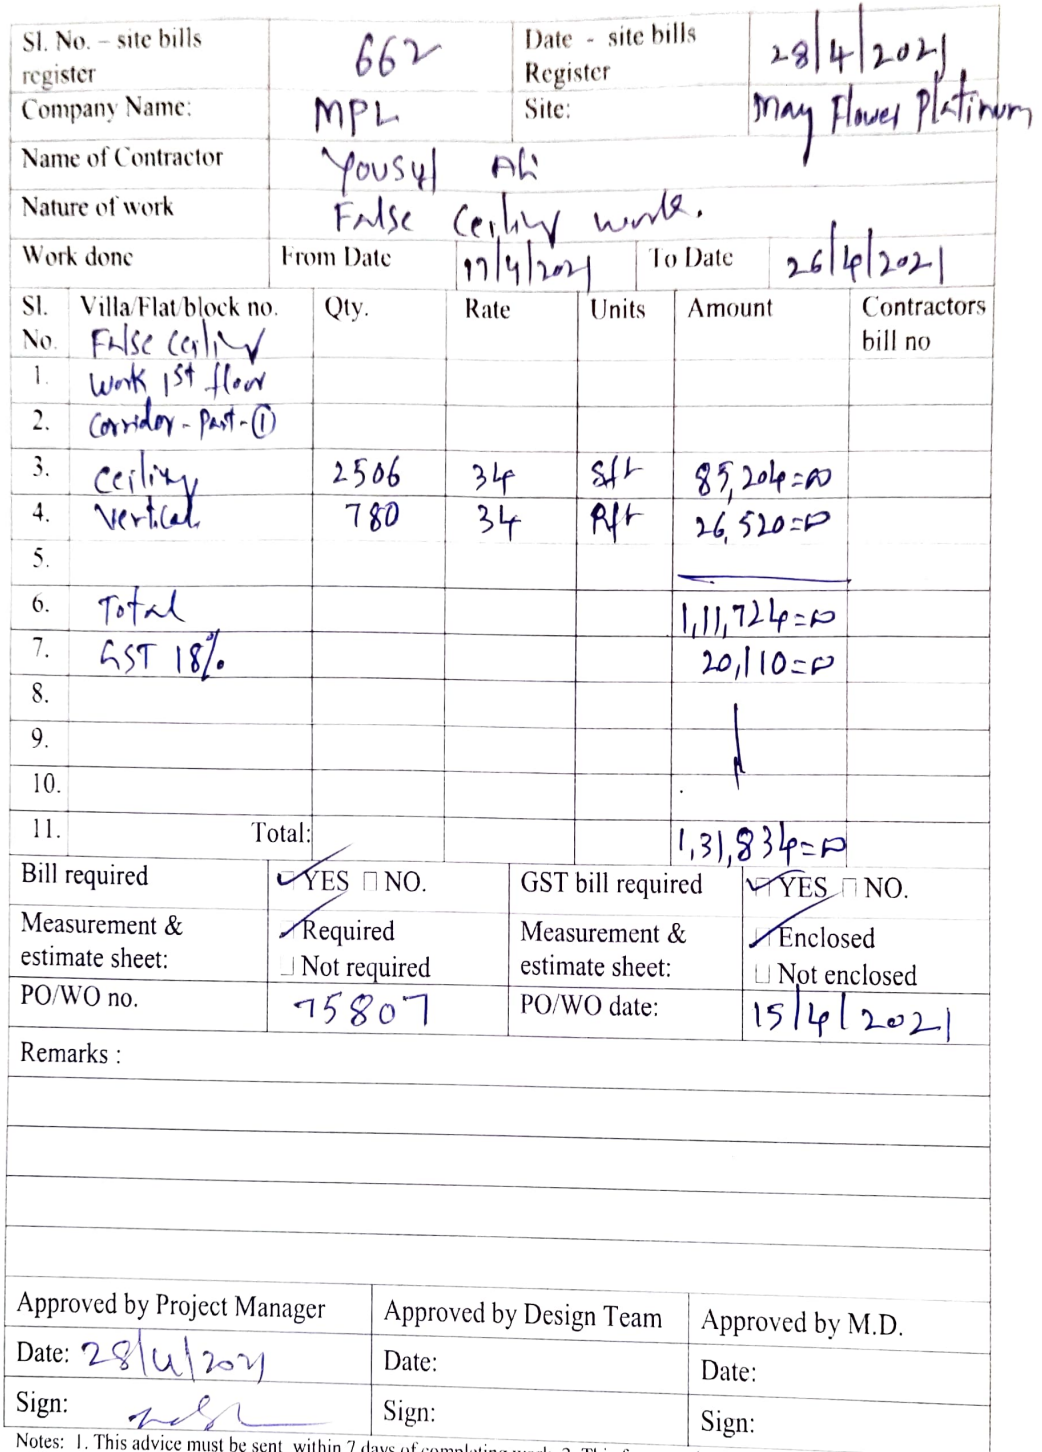 Sl. No. – site bills register 662 Date - site bills Register 28/4/2021
Company Name: MPL Site: May Flower Platinum
Name of Contractor Yousuf Ali
Nature of work False Ceiling work.
Work done From Date 17/4/2021 To Date 26/4/2021
Sl. No. Villa/Flat/block no. Qty. Rate Units Amount Contractors bill no
False ceiling
1. Work 1st floor
2. Corridor - Part - ①
3. Ceiling 2506 34 Sft 85,204=00
4. Vertical 780 34 Rft 26,520=00
5.
6. Total 1,11,724=00
7. GST 18% 20,110=00
8.
9.
10.
11. Total: 1,31,834=00
Bill required YES NO. GST bill required YES NO.
Measurement & estimate sheet: Required Not required Measurement & estimate sheet: Enclosed Not enclosed
PO/WO no. 75807 PO/WO date: 15/4/2021
Remarks :
Approved by Project Manager Approved by Design Team Approved by M.D.
Date: 28/4/2021 Date: Date:
Sign: Sign: Sign:
Notes: 1. This advice must be sent within 7 days of completing work. 2. This